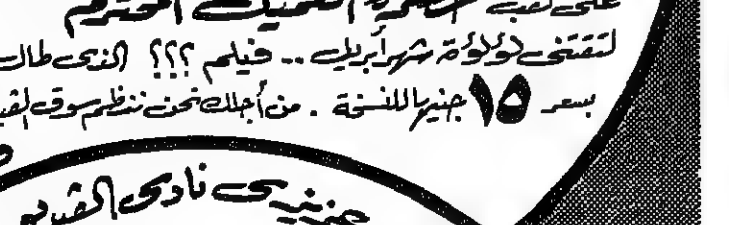 على لقب حضرة العميل المحترم
لتقتنى لؤلؤة شهر أبريل .. فيلم ؟؟؟ الذى طال
بسعر ١٥ جنيها للنسخة . من أجلك نحن ننظم سوق
عزيزى نادى الفيديو